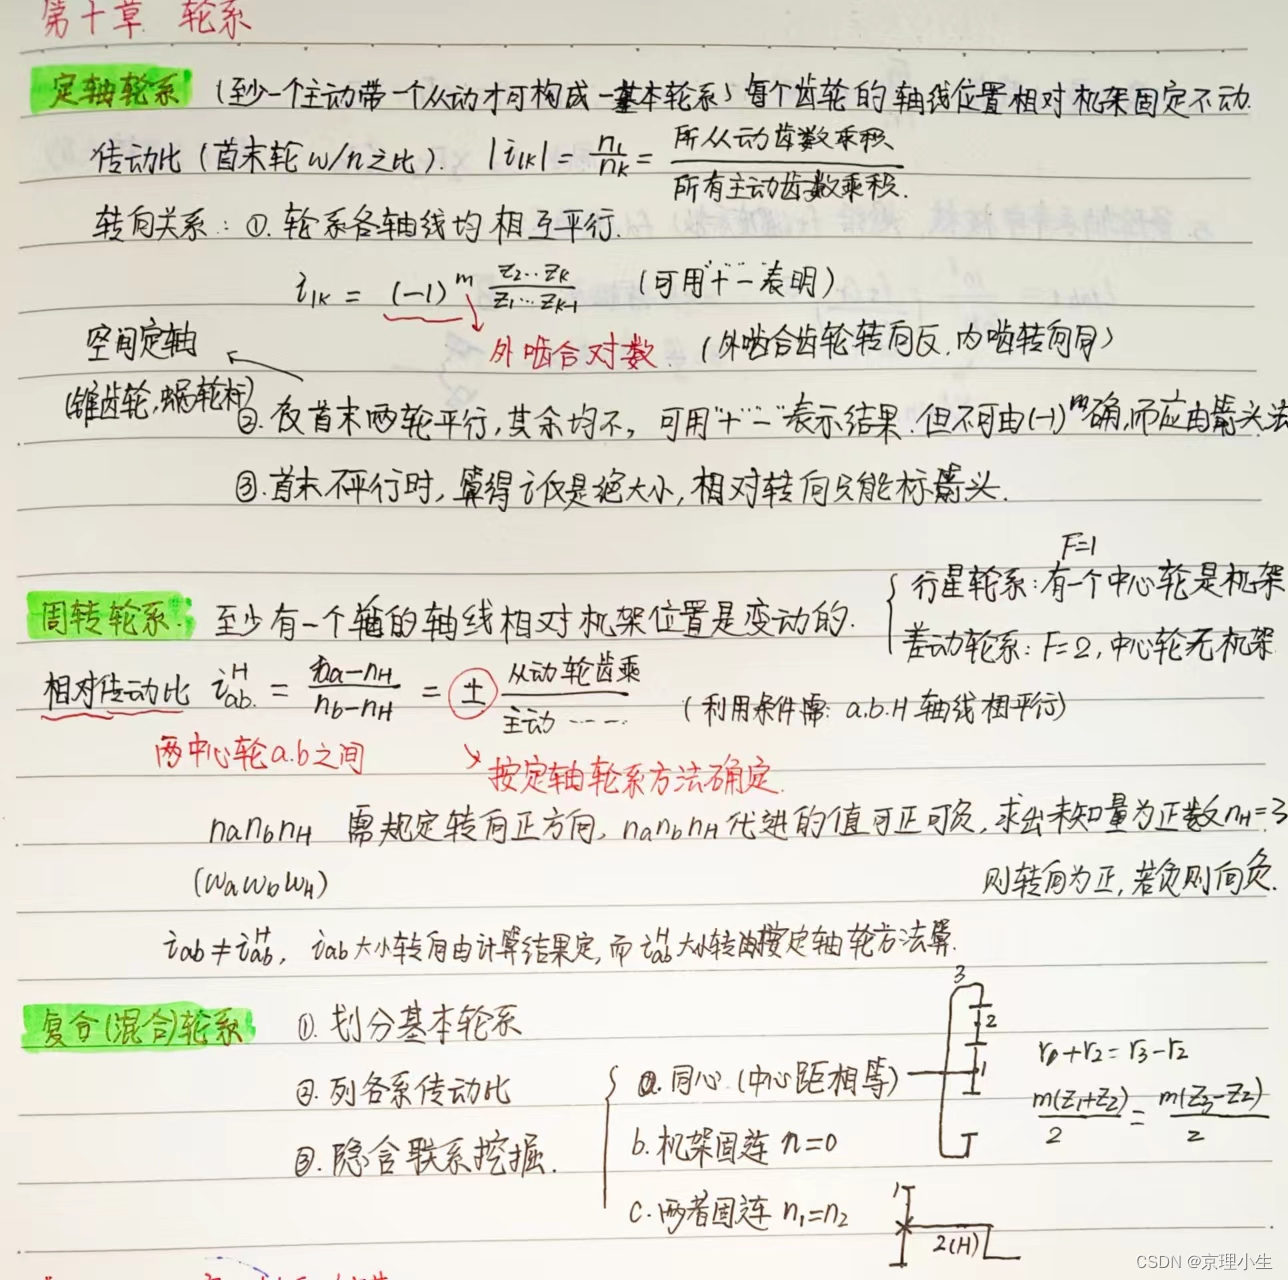 第十章 轮系
定轴轮系 (至少一个主动带一个从动才可构成一基本轮系) 每个齿轮的轴线位置相对机架固定不动.
传动比 (首末轮 w/n之比). |i1K| = n1/nK = 所从动齿数乘积/所有主动齿数乘积.
转向关系: ①. 轮系各轴线均相互平行.
i1K = (-1)^m Z2…ZK/Z1…ZK-1 (可用"+""-"表明)
外啮合对数 (外啮合齿轮转向反, 内啮转向同)
空间定轴
(锥齿轮, 蜗轮杆)
②. 仅首末两轮平行, 其余均不, 可用"+""-"表示结果. 但不可由(-1)^m确, 而应由箭头法
③. 首末不平行时, 算得i仅是绝大小, 相对转向只能标箭头.
周转轮系: 至少有一个轴的轴线相对机架位置是变动的.
F=1
行星轮系: 有一个中心轮是机架
差动轮系: F=2, 中心轮无机架
相对传动比 i_ab^H = na-nH/nb-nH = ± 从动轮齿乘/主动…… (利用条件需: a.b.H 轴线相平行)
两中心轮a.b之间
按定轴轮系方法确定.
na nb nH 需规定转向正方向, na nb nH代进的值可正可负, 求出未知量为正数nH=3
(wa wb wH)
则转向为正, 若负则向负.
iab ≠ i_ab^H, iab大小转向由计算结果定, 而i_ab^H大小转向按定轴轮方法算.
复合(混合)轮系 ①. 划分基本轮系
②. 列各系传动比
③. 隐含联系挖掘.
a. 同心 (中心距相等)
b. 机架固连 n=0
c. 两者固连 n1=n2
3
2
1
r1+r2=r3-r2
m(Z1+Z2)/2 = m(Z3-Z2)/2
1
2(H)
CSDN @京理小生